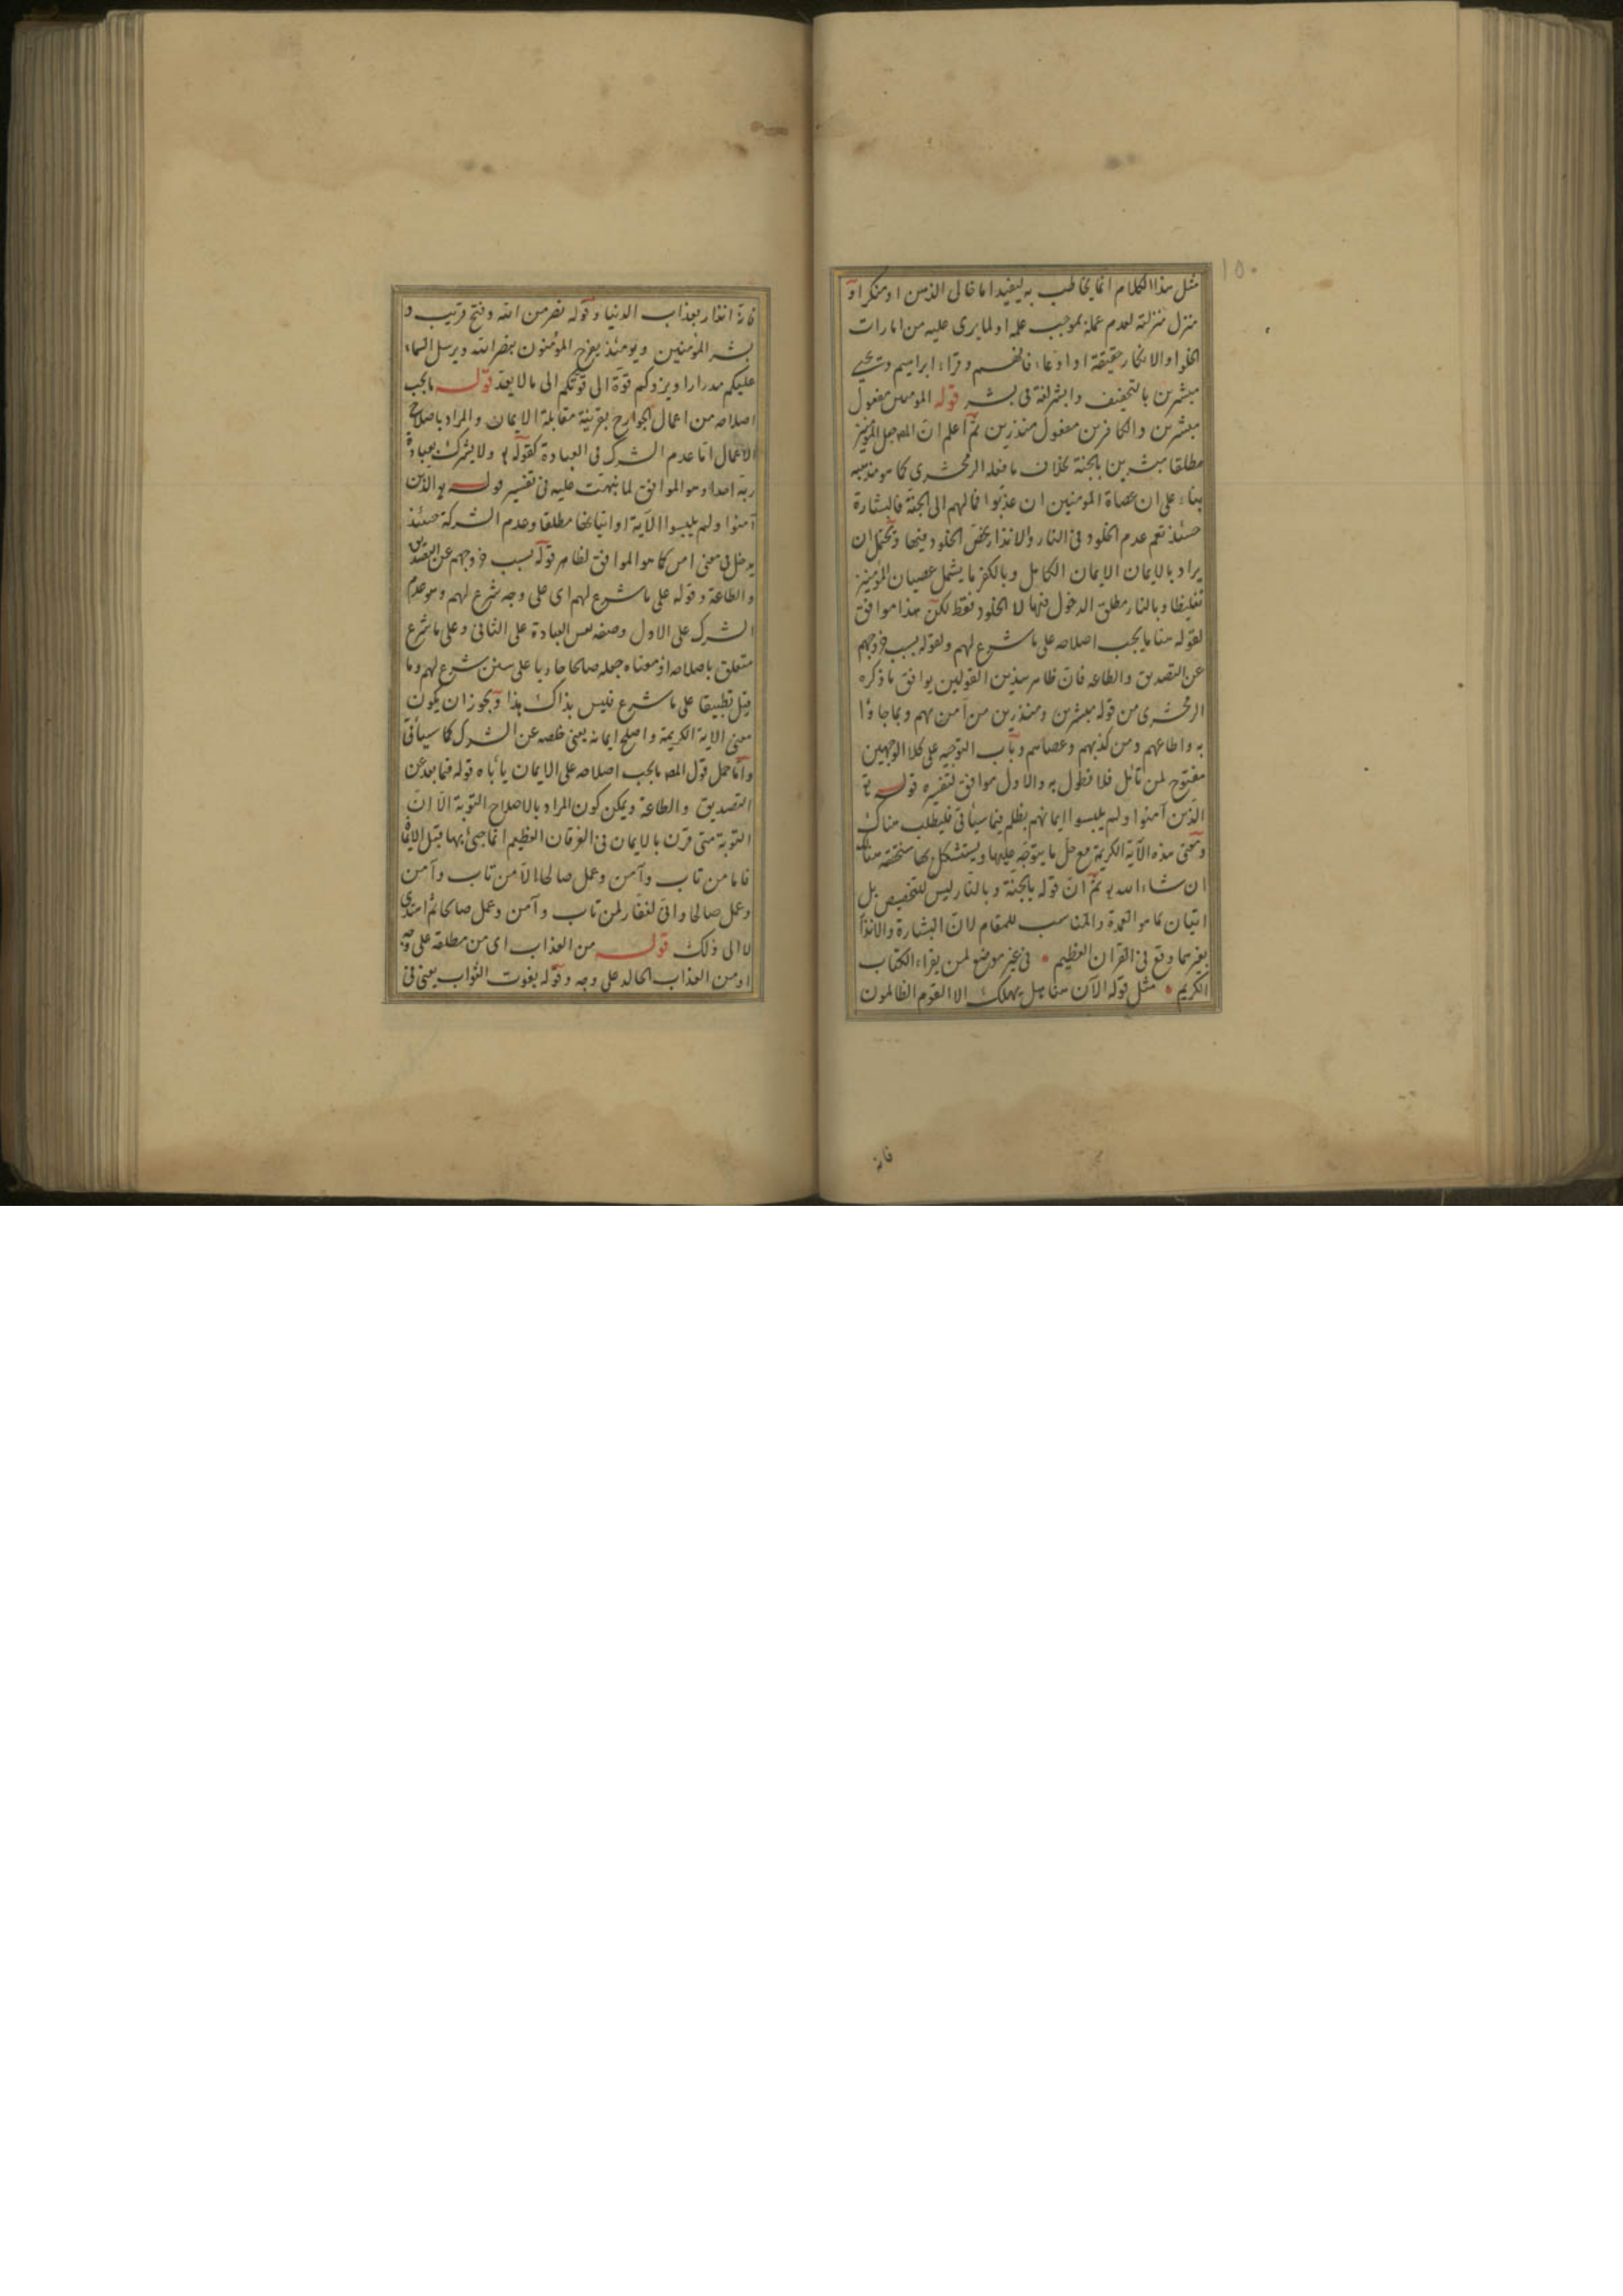 ١٥٠
مثل هذا الكلام انما يخاطب به ليفيد اما خالى الذهن او منكرا او
منزل منزلته لعدم عمله بموجب علمه او لما يرى عليه من امارات
الخلو او الانكار حقيقة او ادعاء فافهم وقراء ابراهيم ويحيى
مبشرين بالتخفيف وابشر لغة فى بشر قوله المؤمنين مفعول
مبشرين والكافرين مفعول منذرين ثم اعلم ان المص جعل المؤمنين
مطلقا مبشرين بالجنة بخلاف ما فعله الزمخشرى كما هو مذهبه
بناء على ان عصاة المؤمنين ان عذبوا فمالهم الى الجنة فالبشارة
حينئذ تعم عدم الخلود فى النار والانذار يخص الخلود فيها ويحتمل ان
يراد بالايمان الايمان الكامل وبالكفر ما يشمل عصيان المؤمنين
تغليظا وبالنار مطلق الدخول فيها لا الخلود فقط لكن هذا موافق
لقوله هنا ما يجب اصلاحه على ما شرع لهم ولقوله بسبب خروجهم
عن التصديق والطاعه فان ظاهر هذين القولين يوافق ما ذكره
الزمخشرى من قوله مبشرين ومنذرين من آمن بهم وبما جاؤا
به واطاعهم ومن كذبهم وعصاهم وباب التوجيه على كلا الوجهين
مفتوح لمن تأمل فلا نطول به والاول موافق لتفسيره قوله تع
الذين آمنوا ولم يلبسوا ايمانهم بظلم فيما سيأتى فليطلب هناك
ومعنى هذه الآية الكريمة مع حل ما يتوجه عليها ويستشكل بها سنحققه هناك
ان شاء الله تع ثم ان قوله بالجنة وبالنار ليس للتخصيص بل
اتيان بما هو العمدة والمناسب للمقام لان البشارة والانذار
بغيرهما وقع فى القرآن العظيم فى غير موضع لمن يقراء الكتاب
الكريم مثل قوله الآن هنا هل يهلك الا القوم الظالمون
فانه
فانه انذار بعذاب الدنيا وقوله نصر من الله وفتح قريب و
بشر المؤمنين ويومئذ يفرح المؤمنون بنصر الله ويرسل السماء
عليكم مدرارا ويزدكم قوة الى قوتكم الى ما لا يعد قوله ما يجب
اصلاحه من اعمال الجوارح بقرينة مقابلة الايمان والمراد باصلاح
الاعمال اما عدم الشرك فى العبادة كقوله تع ولا يشرك بعبادة
ربه احدا وهو الموافق لما نبهت عليه فى تفسير قوله تع الذين
آمنوا ولم يلبسوا الآية او اتيانها مطلقا وعدم الشركة حينئذ
يدخل فى معنى امن كما هو الموافق لظاهر قوله بسبب خروجهم عن التصديق
والطاعة وقوله على ما شرع لهم اى على وجه شرع لهم وهو عدم
الشرك على الاول وصفه نفس العبادة على الثانى وعلى ما شرع
متعلق باصلاحه اذ معناه جعله صالحا جاريا على سنن شرع لهم وما
قيل تطبيقا على ما شرع فليس بذاك هذا ويجوز ان يكون
معنى الآية الكريمة واصلح ايمانه يعنى خلصه عن الشرك كما سيأتى
واما حمل قول المص ما يجب اصلاحه على الايمان يأباه قوله فيما بعد عن
التصديق والطاعة ويمكن كون المراد بالاصلاح التوبة الا ان
التوبة متى قرن بالايمان فى الفرقان العظيم انما جئ بها قبل الايمان
فاما من تاب وآمن وعمل صالحا الا من تاب وآمن
وعمل صالحا وانى لغفار لمن تاب وآمن وعمل صالحا ثم اهتدى
لا الى ذلك قوله من العذاب اى من مطلقه على وجه
او من العذاب الخالد على وجه وقوله بفوت الثواب يعنى فى